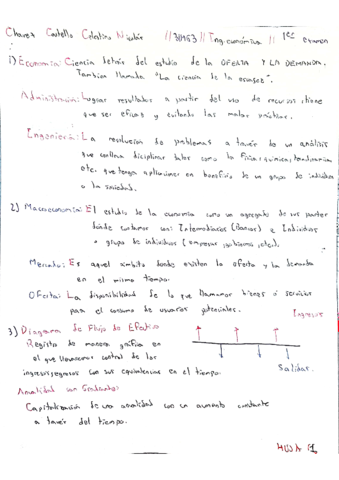 Chavez Castello Celestino Nicolás // // Ing. económica // 1er examen
1) Economía: Ciencia detrás del estudio de la OFERTA Y LA DEMANDA.
También llamada "La ciencia de la escasez".
Administración: Lograr resultados a partir del uso de recursos, tiene
que ser eficaz y evitando las malas prácticas.
Ingeniería: La resolución de problemas a través de un análisis
que conlleva disciplinas tales como la física, química,
etc. que tengan aplicaciones en beneficio de un grupo de individuos
o la sociedad.
2) Macroeconomía: El estudio de la economía como un agregado de sus partes
donde contamos con Intermediarios (Bancos) e Individuos
o grupo de individuos (empresas, gobierno, etc).
Mercado: Es aquel ámbito donde existen la oferta y la demanda
en el mismo tiempo.
Oferta: La disponibilidad de lo que llamamos bienes o servicios
para el consumo de usuarios potenciales.
Ingresos
3) Diagrama de Flujo de Efectivo
Registro de manera gráfica en
el que llevaremos control de los
ingresos/egresos con sus equivalencias en el tiempo.
Salidas.
Anualidad con Gradientes:
Capitalización de una anualidad con un aumento constante
a través del tiempo.
HOJA 1